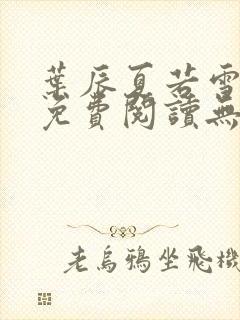 葉辰夏若雪
免費閱讀無
老烏鴉坐飛機